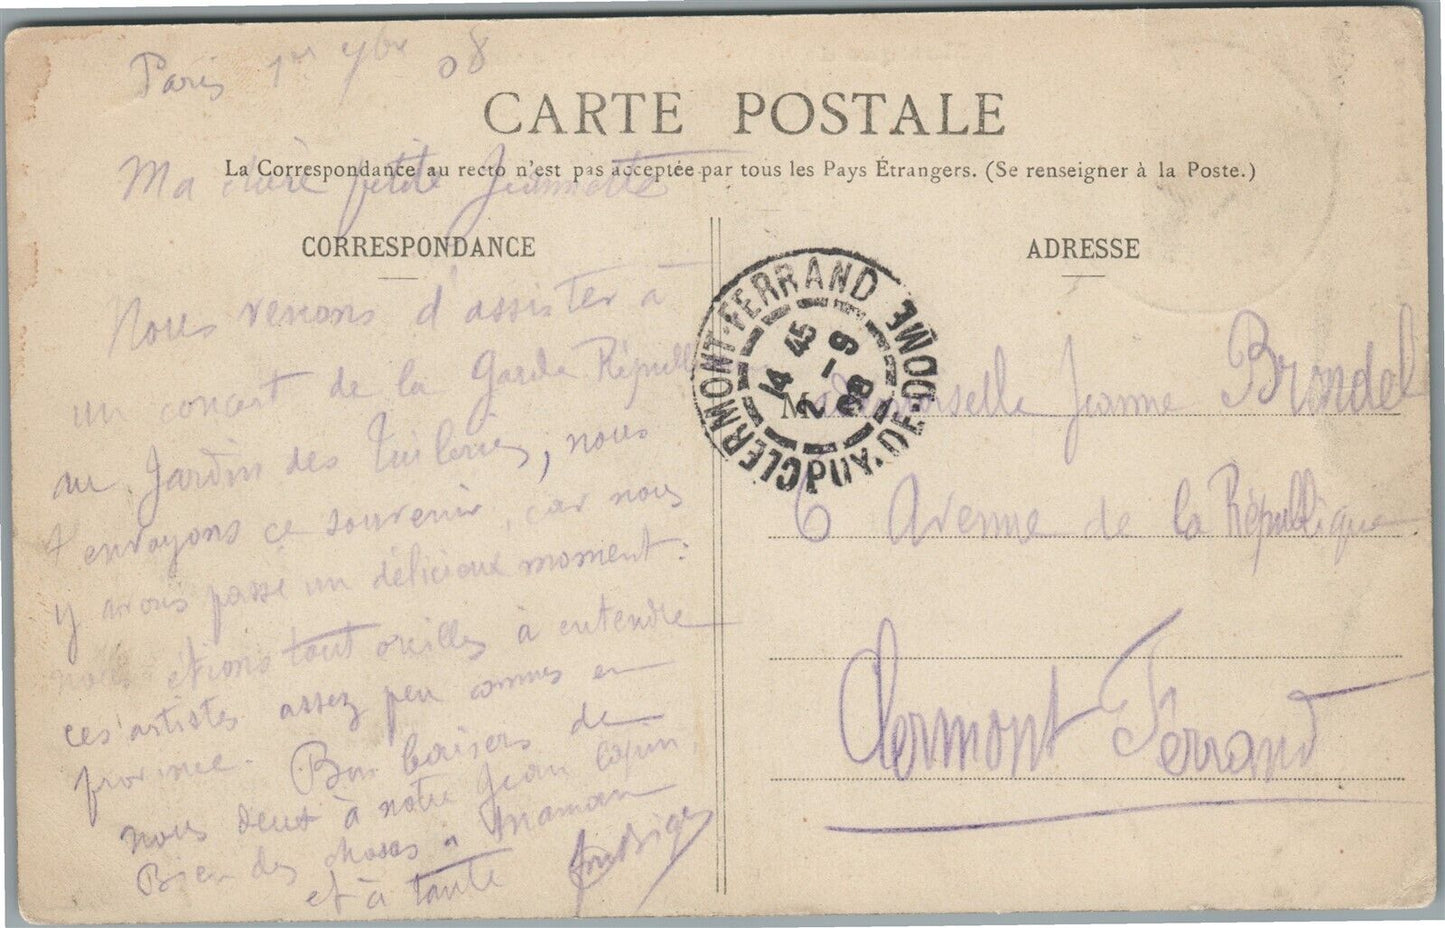 Paris 1er 7bre 08
CARTE POSTALE
La Correspondance au recto n'est pas acceptée par tous les Pays Étrangers. (Se renseigner à la Poste.)
Ma chère petite Jeannette
CORRESPONDANCE
Nous venons d'assister à
un concert de la Garde Républ
au Jardin des Tuileries, nous
t'envoyons ce souvenir, car nous
y avons passé un délicieux moment:
nous étions tout oreilles à entendre
ces artistes assez peu connus en
province. Bons baisers de
nous deux à notre Jean
Bien des choses à Maman
et à tante
ADRESSE
Mademoiselle Jeanne Brondel
6 Avenue de la République
Clermont Ferrand
CLERMONT-FERRAND PUY-DE-DOME
14 45
2 -9
08